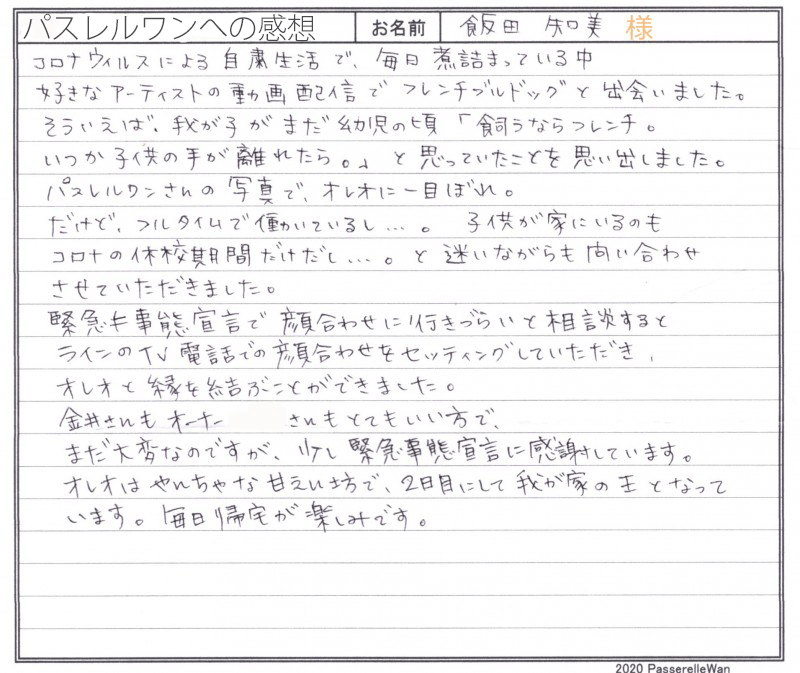 パスレルワンへの感想 お名前 飯田 知美 様
コロナウィルスによる自粛生活で、毎日煮詰まっている中
好きなアーティストの動画配信でフレンチブルドッグと出会いました。
そういえば、我が子がまだ幼児の頃「飼うならフレンチ。
いつか子供の手が離れたら。」と思っていたことを思い出しました。
パスレルワンさんの写真で、オレオに一目ぼれ。
だけど、フルタイムで働いているし…。子供が家にいるのも
コロナの休校期間だけだし…。と迷いながらも問い合わせ
させていただきました。
緊急事態宣言で顔合わせに行きづらいと相談すると
ラインのTV電話での顔合わせをセッティングしていただき、
オレオと縁を結ぶことができました。
金井さんもオーナー さんもとてもいい方で、
まだ大変なのですが、少し緊急事態宣言に感謝しています。
オレオはやんちゃな甘えん坊で、2日目にして我が家の王となって
います。毎日帰宅が楽しみです。
2020 PasserelleWan